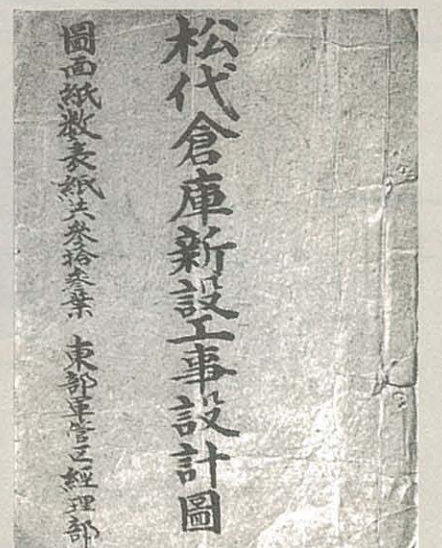 松代倉庫新設工事設計圖
圖面紙数表紙共参拾参葉 東部軍管区經理部